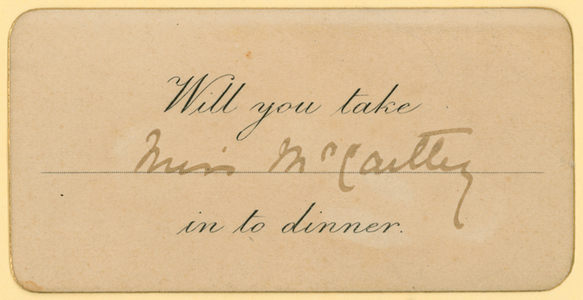 Will you take
Miss McCartley
in to dinner.